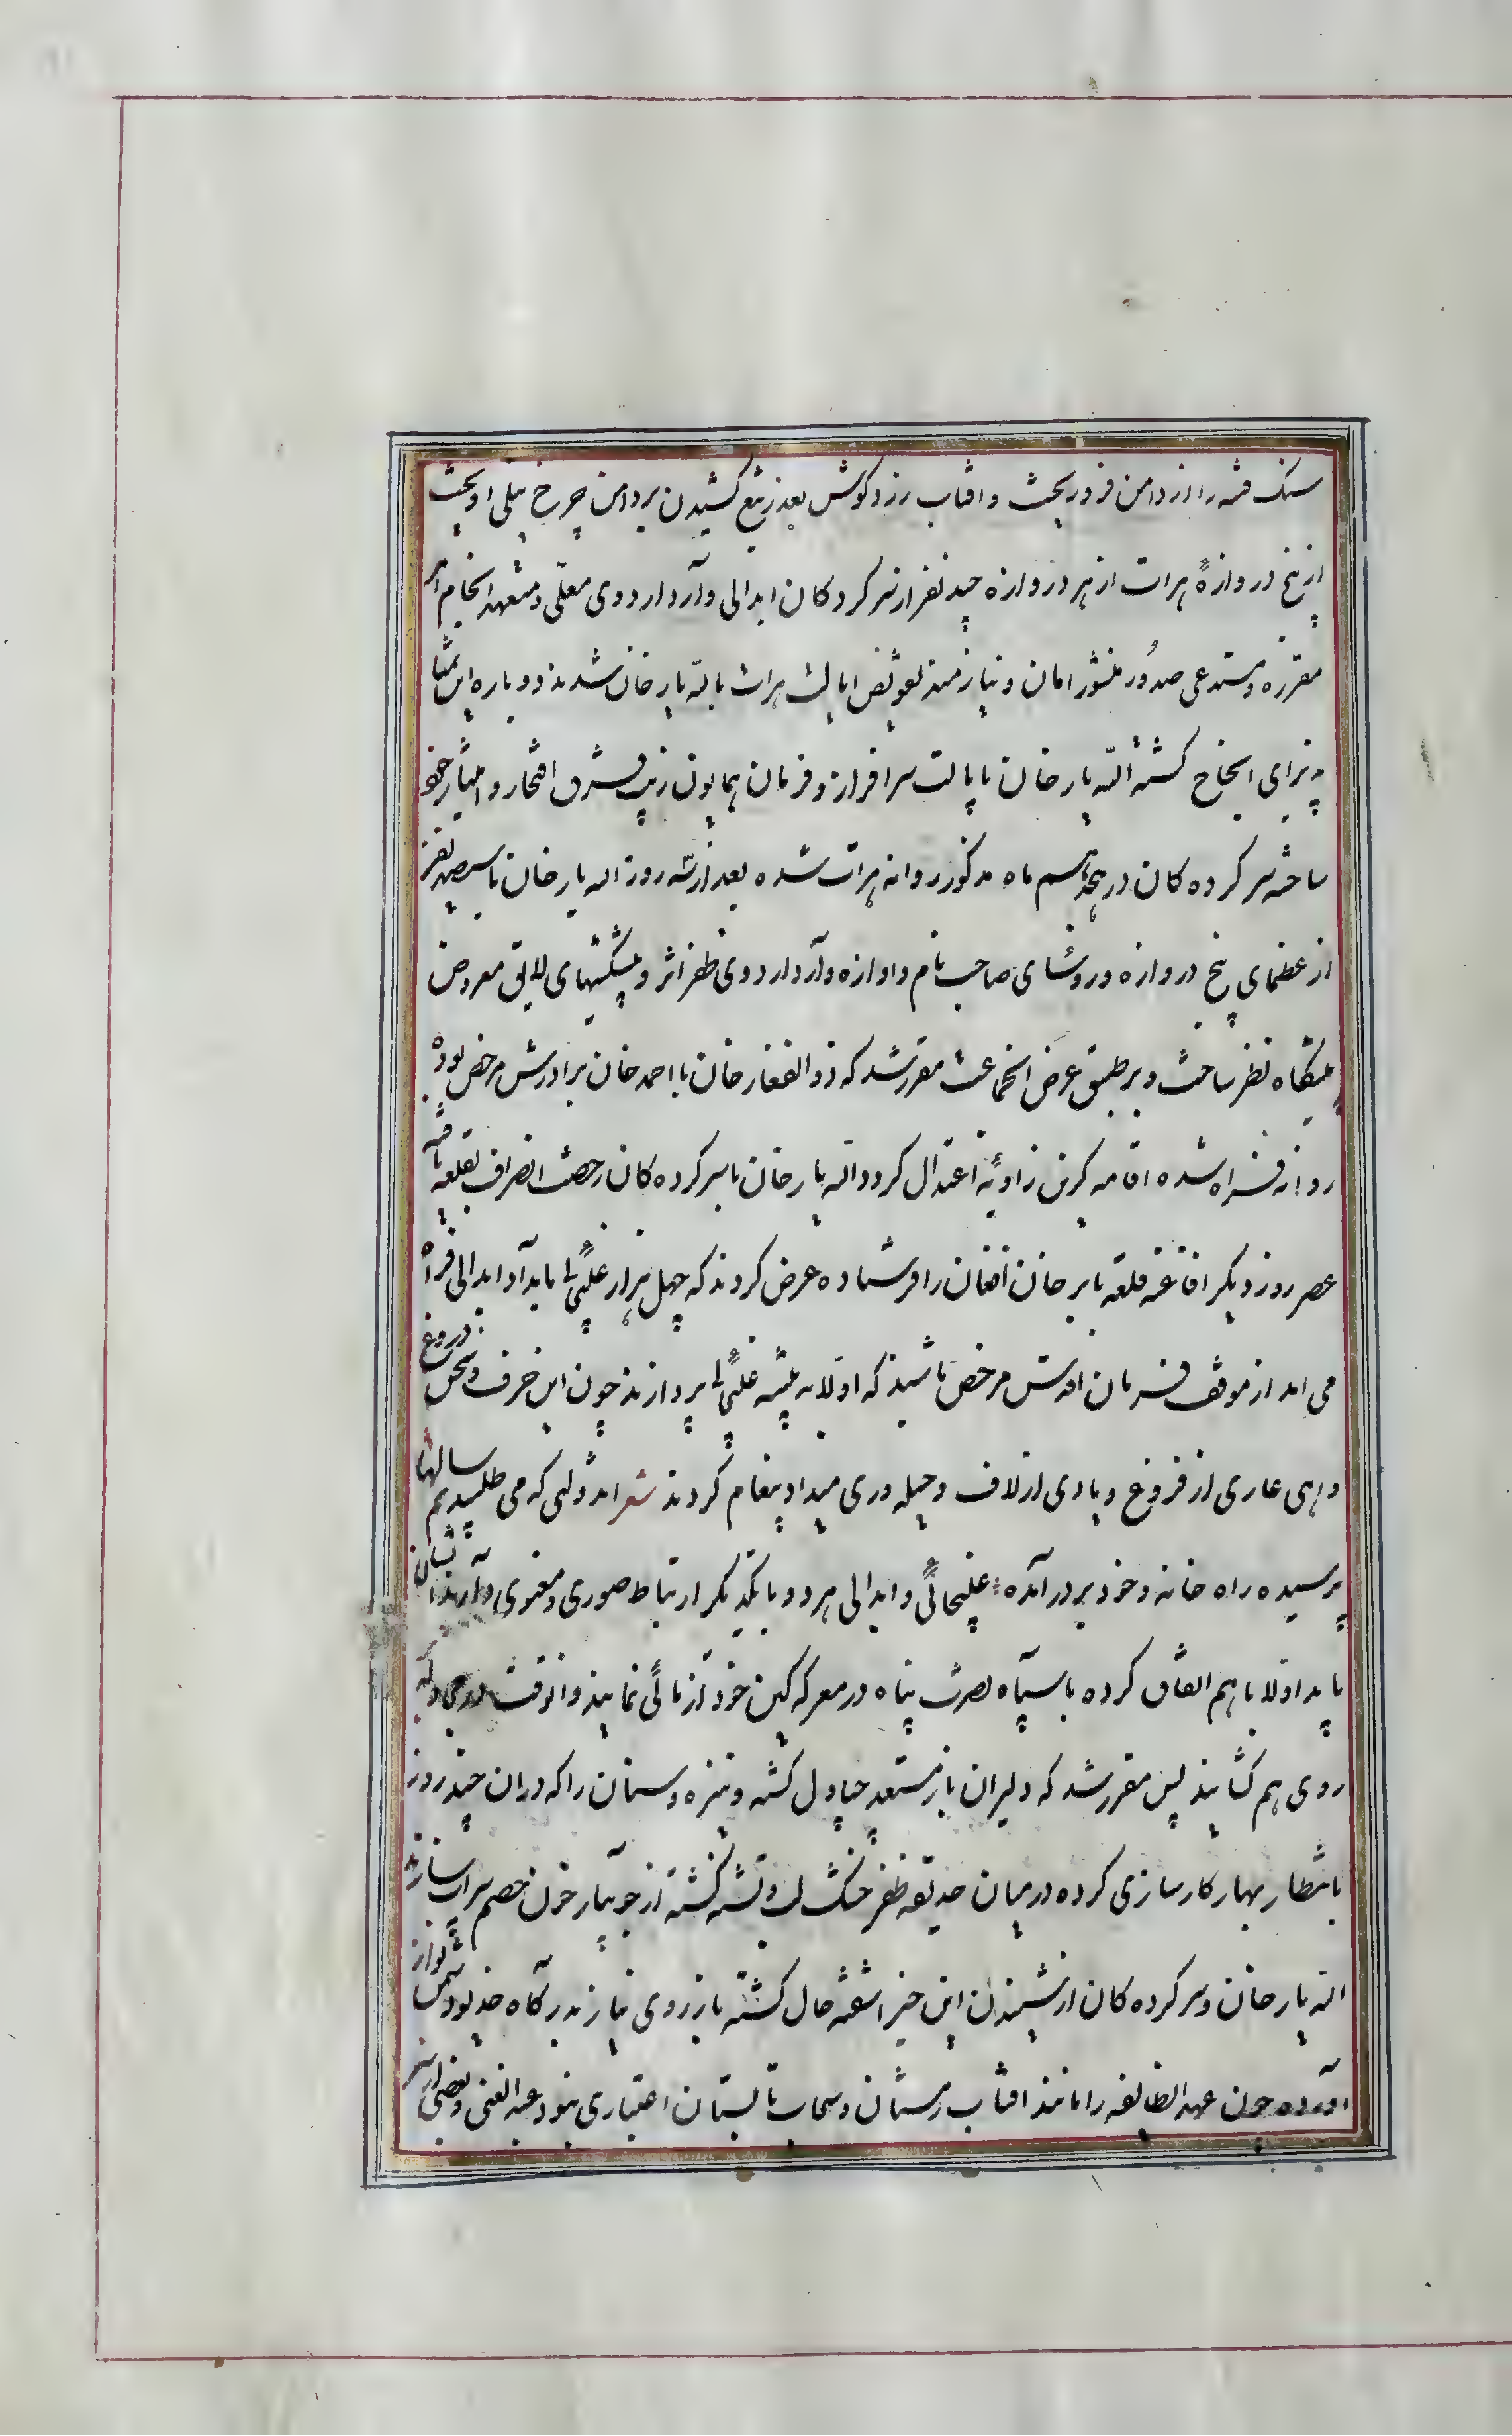 سنک فتنه را از دامن فرو ریخت و افتاب زرد کوش بعد زتیغ کشیدن بر دامن چرخ نیلی اویخت
از پنج دروازهٔ هرات از هر دروازه چند نفر از سرکردکان ابدالی وارد اردوی معلّی و متعهد انجام امر
مقرره و مستدعی صدور منشور امان و نیازمند تفویض ایالت هرات بالله یار خان شدند دوباره این تمنا
پذیرای انجاح کشته الله یار خان بایالت سرافراز و فرمان همایون زیب شرف افتخار و امتیاز خود
ساخته سرکرده کان در هجدهم ماه مذکور روانه هرات شده بعد از سه روز اله یار خان با سیصد نفر
از عظمای پنج دروازه و روسای صاحب نام و اوازه وارد اردوی ظفر اثر و پیشکشهای لایق معروض
پیشکاه نظر ساخت و بر طبق عرض انجماعت مقرر شد که ذوالفقار خان با احمد خان برادرش مرخص بوده
روانه فراه شده اقامه کزین زاویهٔ اعتدال کردد و اله یار خان با سرکرده کان رخصت انصراف بقلعه یافته
عصر روز دیکر افاغنه قلعه بابر خان افغان را فرستاده عرض کردند که چهل هزار غلیجائی بامداد ابدالی فراه
می اید از موقف فرمان اقدس مرخص باشیند که اولا به پیشه غلیجائی پردازند چون این حرف و سخن دروغ
واهی عاری از فروغ و یادی از لاف و حیله وری میداد پیغام کردند شعر اندولتی که می طلبیدیم سالها
پرسیده راه خانه و خود بر در آمده غلیجائی و ابدالی هر دو با یکدیکر ارتباط صوری و معنوی دارند ایشان
باید اولا با هم اتفاق کرده با سپاه نصرت پناه در معرکه کین خود آزمائی نمایند و انوقت در مجادله
روی هم کشایند پس مقرر شد که دلیران باز مستعد چپاول کشته و نیزه و سنان را که دران چند روز
بانتظار بهار کارسازی کرده در میان حدیقه ظفر خشک لب و تشنه کشته از جویبار خون خصم سیراب سازند
اله یار خان و سرکرده کان از شنیدن این خبر اشفته حال کشته باز روی نیاز بدرکاه خدیو دشمن نواز
اورده چون عهد الطایفه را مانند افتاب زمستان و سحاب تابستان اعتباری نبود عبدالغنی و بعضی از سر